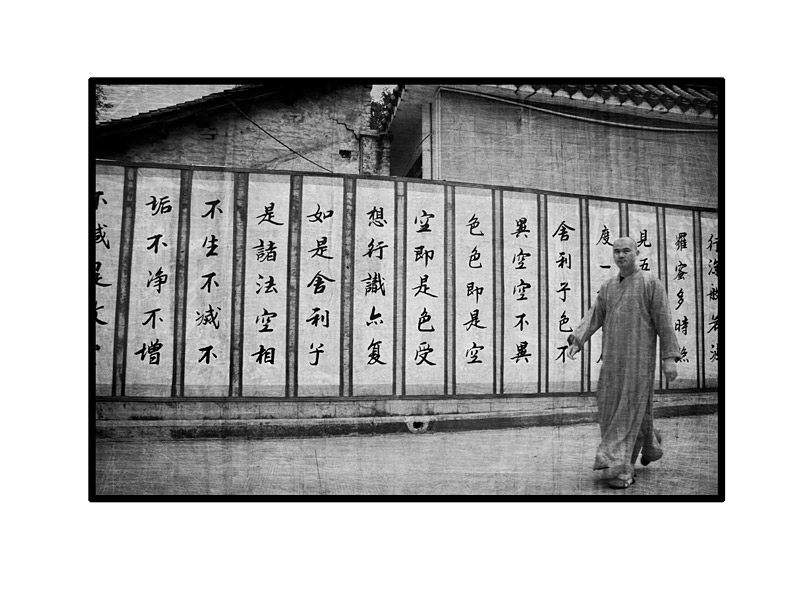 行深般若波
羅蜜多時照
見五
度一
舍利子色不
異空空不異
色色即是空
空即是色受
想行識亦复
如是舍利子
是諸法空相
不生不滅不
垢不净不增
不減是故